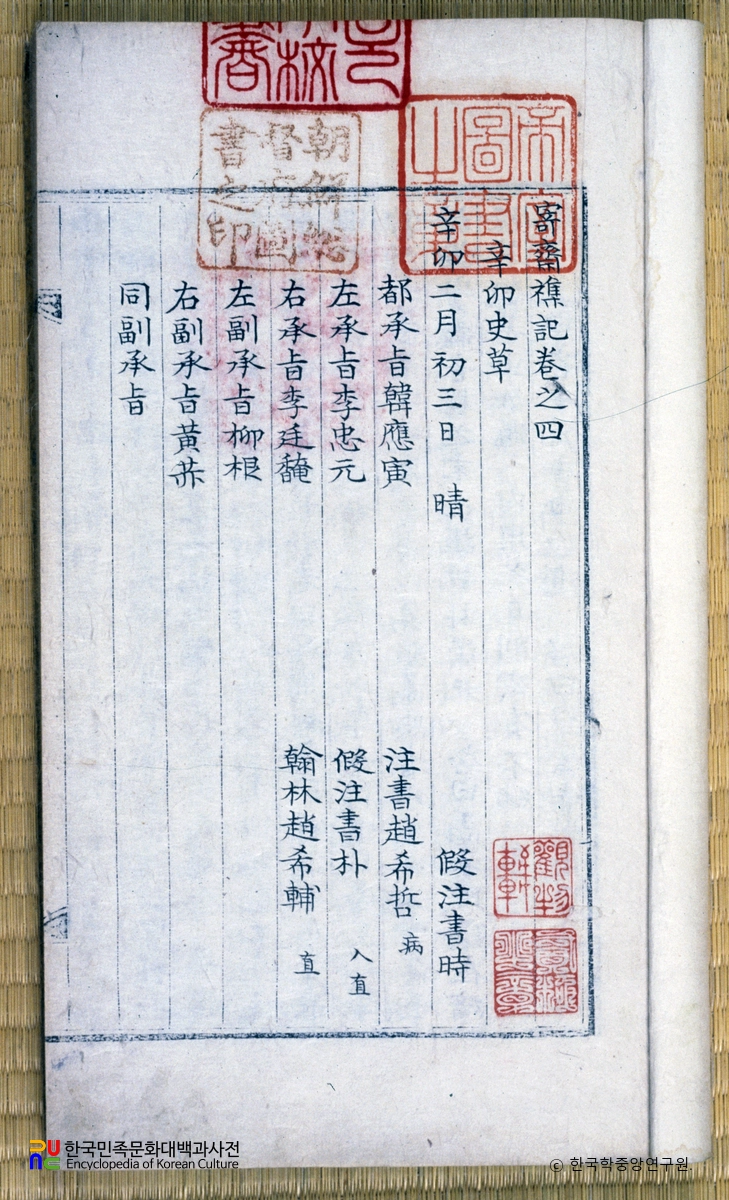 寄齋襍記卷之四
辛卯史草
辛卯二月初三日 晴 假注書時
都承旨韓應寅 注書趙希哲 病
左承旨李忠元 假注書朴 入直
右承旨李廷馣 翰林趙希輔 直
左副承旨柳根
右副承旨黃
同副承旨
帝室圖書之章
朝鮮總督府圖書之印
한국민족문화대백과사전
Encyclopedia of Korean Culture
© 한국학중앙연구원.